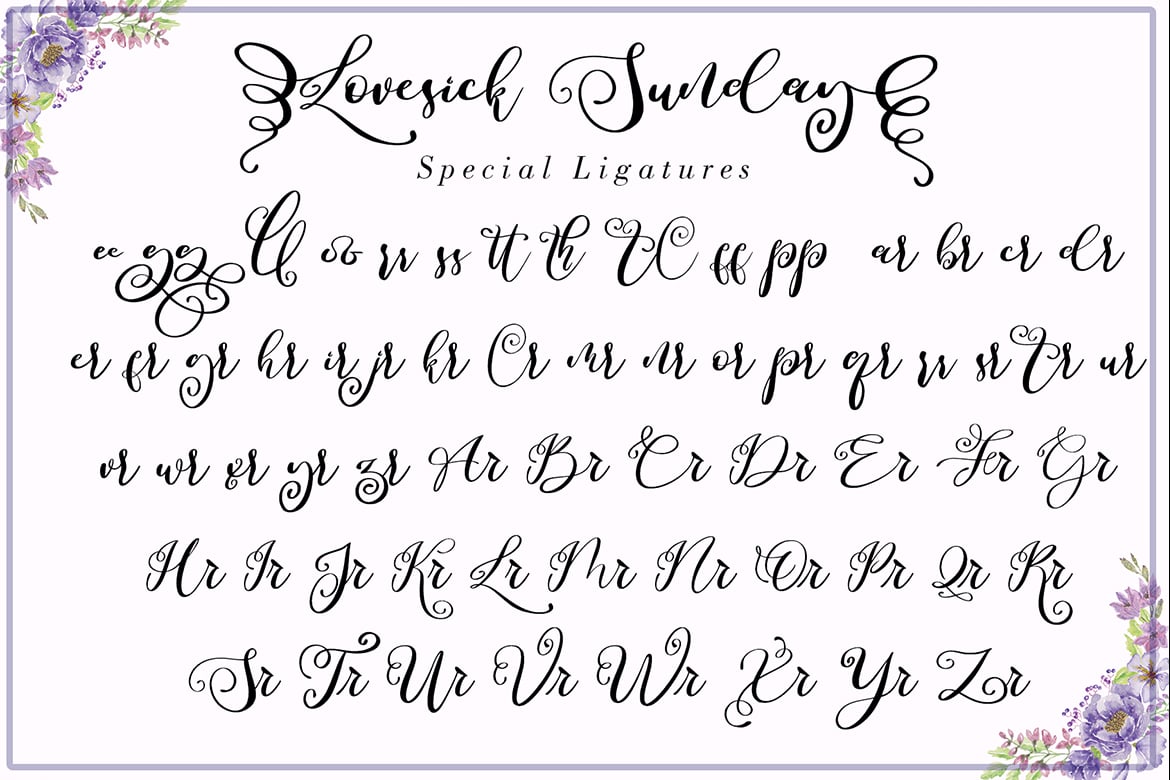 Lovesick Sunday
Special Ligatures
ee gg ll oo rr ss tt th tl ff pp ar br cr dr
er fr gr hr ir jr kr lr mr nr or pr qr rr sr tr ur
vr wr xr yr zr Ar Br Cr Dr Er Fr Gr
Hr Ir Jr Kr Lr Mr Nr Or Pr Qr Rr
Sr Tr Ur Vr Wr Xr Yr Zr